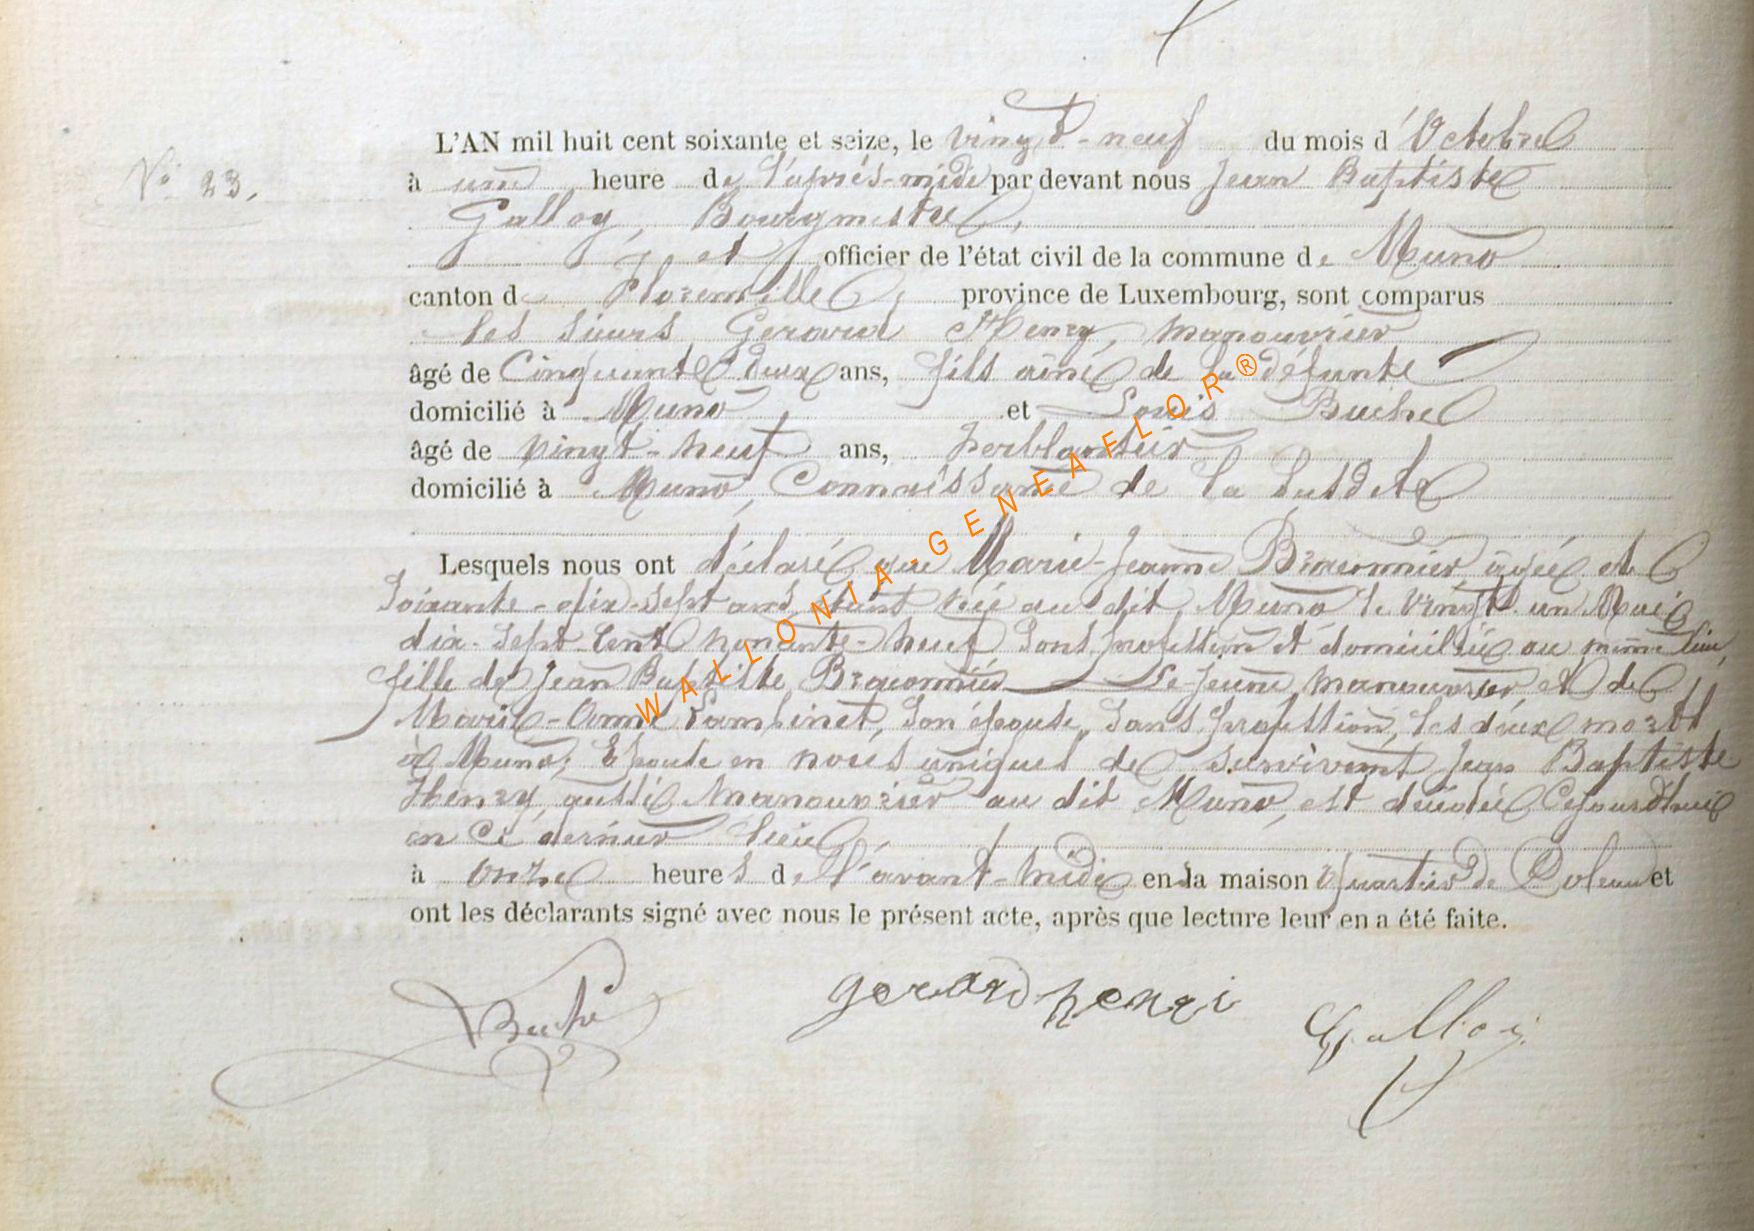 N° 23.
L'AN mil huit cent soixante et seize, le vingt-neuf du mois d'Octobre
à une heure de l'après-midi par devant nous Jean Baptiste
Galloy, Bourgmestre,
et officier de l'état civil de la commune de Muno
canton de Florenville, province de Luxembourg, sont comparus
les sieurs Gerard Henry, manouvrier
âgé de Cinquante deux ans, fils ainé de la défunte
domicilié à Muno et Louis Buché
âgé de vingt-neuf ans, ferblantier
domicilié à Muno, Connaissance de la susdite
Lesquels nous ont déclaré que Marie-Jeanne Braconnier, agée de
Soixante-dix-sept ans, étant née au dit Muno le vingt un Mai
dix-sept Cent nonante-neuf Sans profession et domiciliée au même lieu,
fille de Jean Baptiste Braconnier Le Jeune, manouvrier et de
Marie-Anne Lambinet, Son épouse, Sans profession, les deux morts
à Muno; Epouse en noces uniques de survivant Jean Baptiste
Henry, aussi Manouvrier au dit Muno, est décédée Cejourd'hui
en Ce dernier lieu,
à onze heures de l'avant-midi en la maison quartier de et
ont les déclarants signé avec nous le présent acte, après que lecture leur en a été faite.
Buché gerard henri Galloy
WALLONIA-GENEAFLOR®